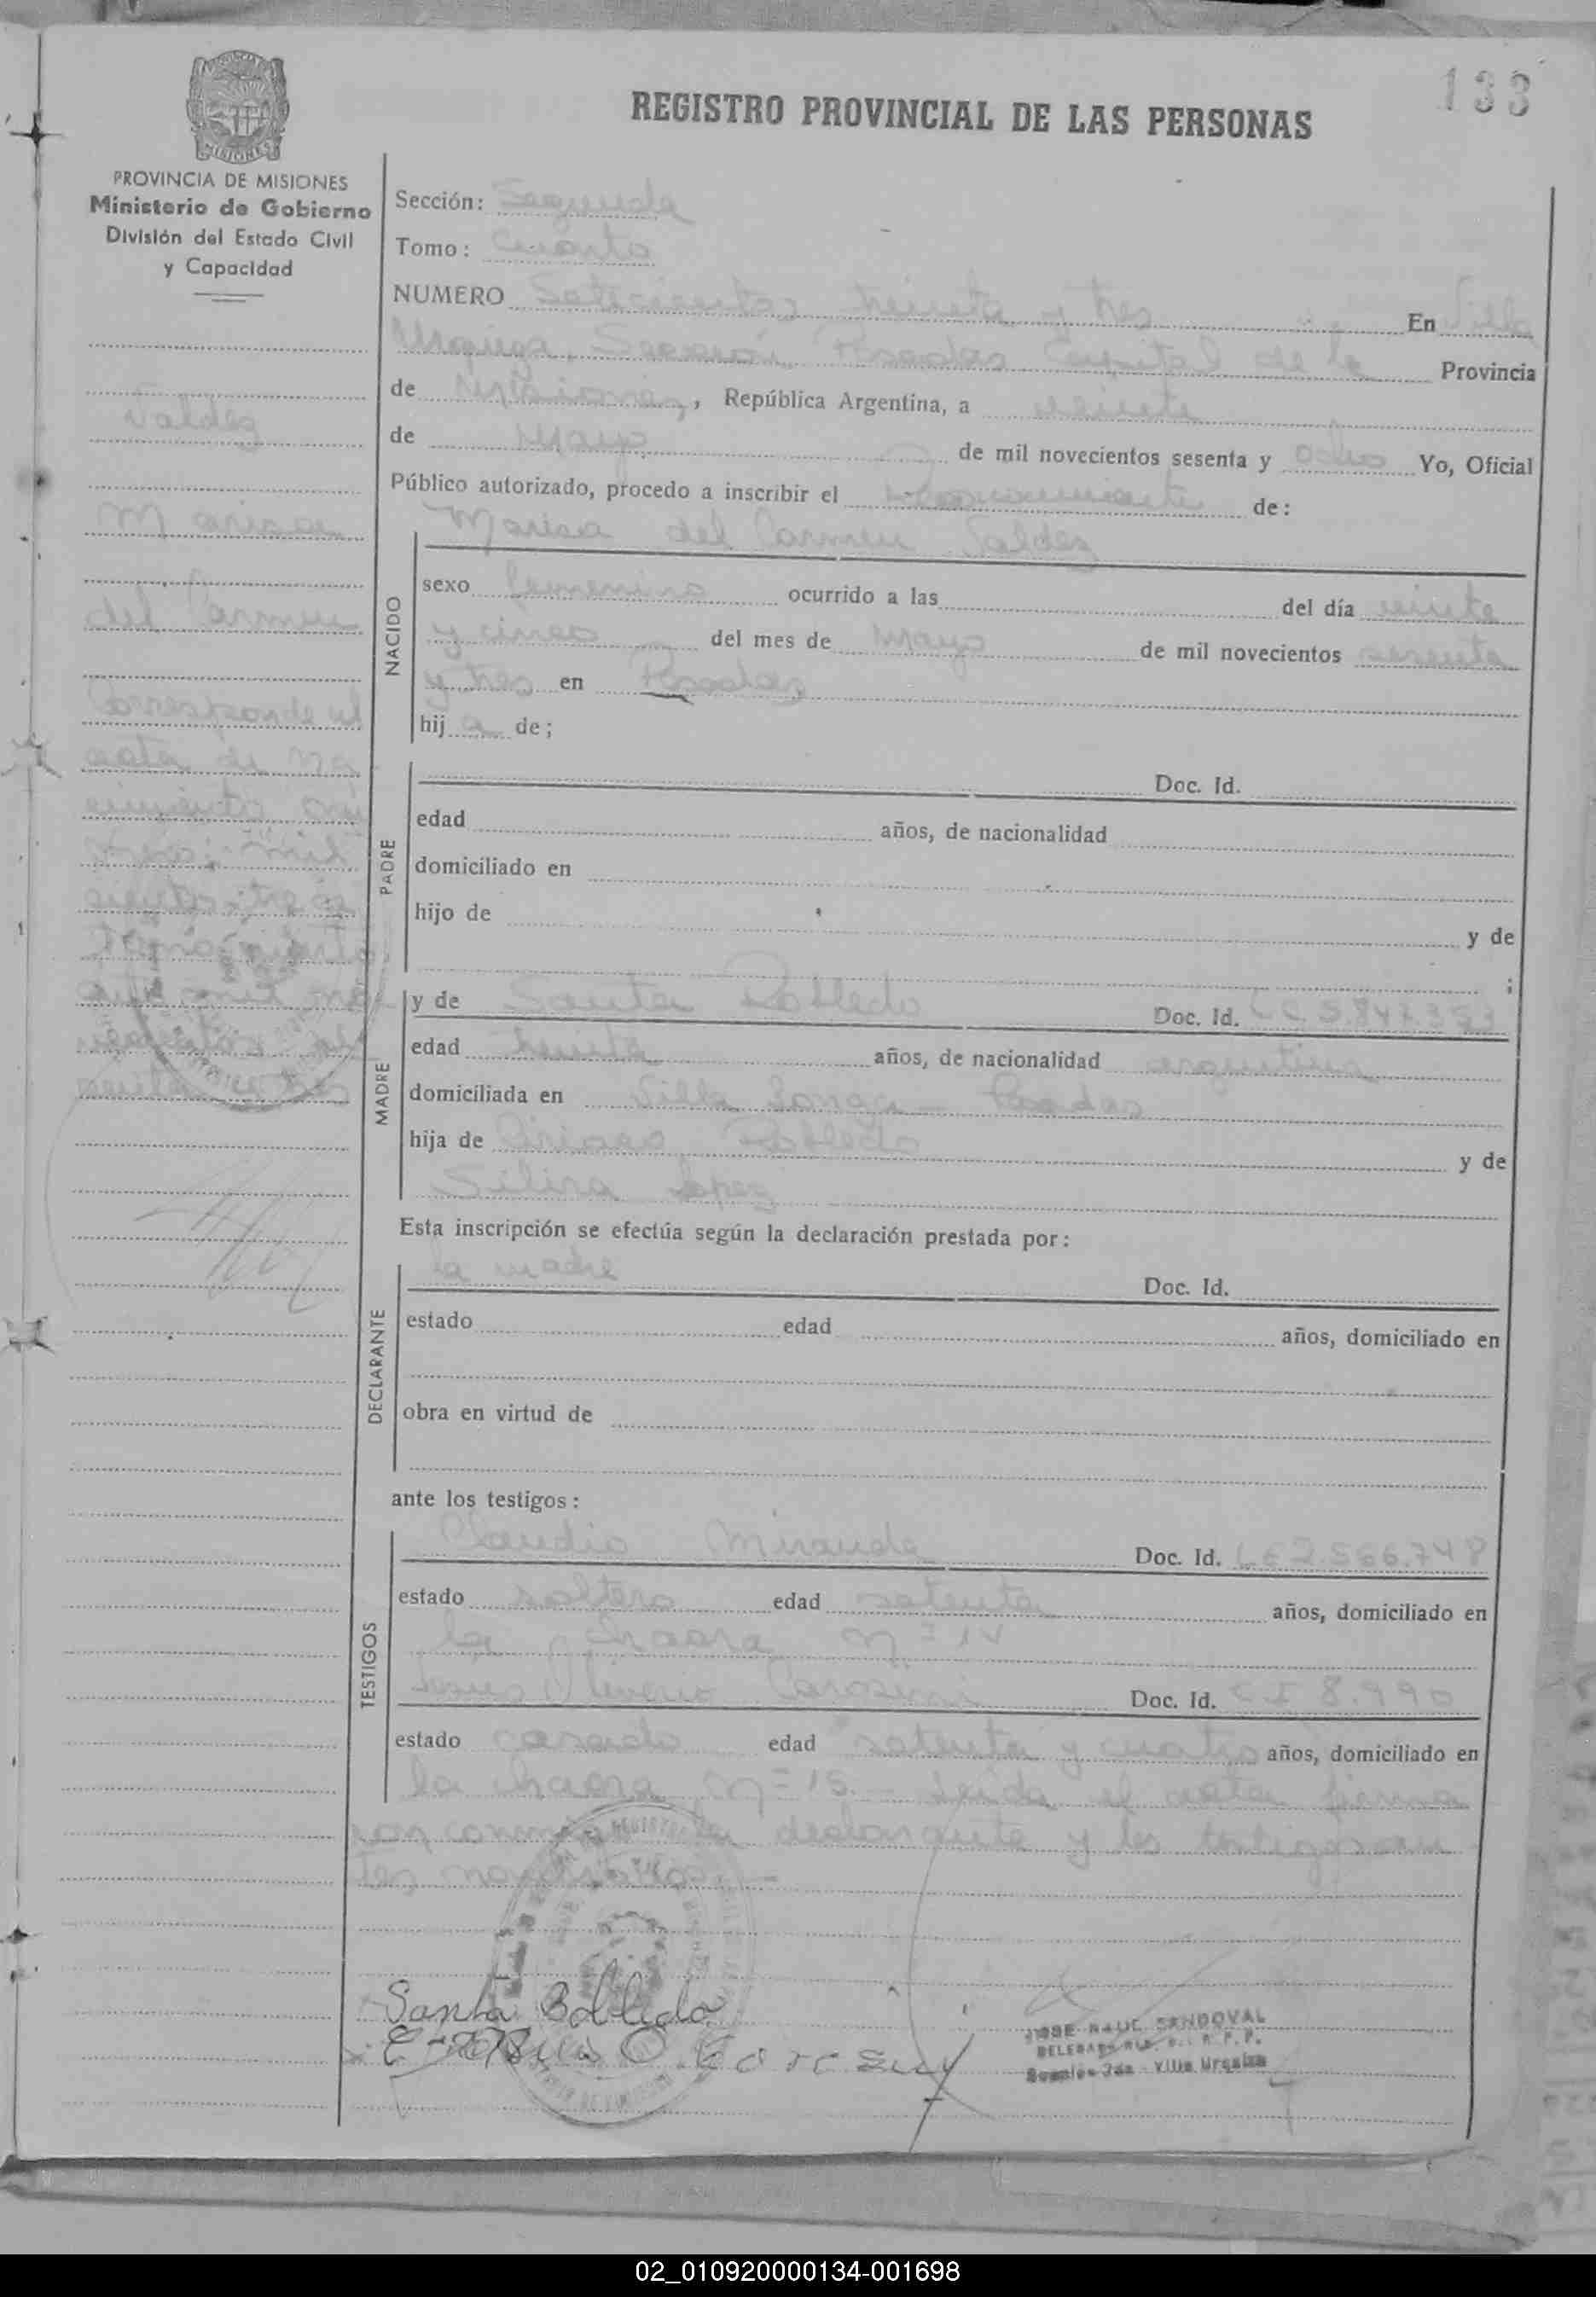 133
REGISTRO PROVINCIAL DE LAS PERSONAS
MISIONES
PROVINCIA DE MISIONES
Ministerio de Gobierno
División del Estado Civil
y Capacidad
Valdez
Marisa
del Carmen
Corresponde al
acta de na
cimiento
Sección: Segunda
Tomo: Cuarto
NUMERO Setecientos treinta y tres En Villa
Urquiza, Sección Posadas Capital de la Provincia
de Misiones, República Argentina, a veinte
de Mayo de mil novecientos sesenta y ocho Yo, Oficial
Público autorizado, procedo a inscribir el de:
NACIDO
Marisa del Carmen Valdez
sexo femenino ocurrido a las del día veinte
y cinco del mes de Mayo de mil novecientos sesenta
y tres en Posadas
hija de;
PADRE
Doc. Id.
edad años, de nacionalidad
domiciliado en
hijo de y de
;
MADRE
y de Santa Robledo Doc. Id. LC
edad treinta años, de nacionalidad argentina
domiciliada en Villa Longa - Posadas
hija de Ciriaco Robledo y de
Silvira Lopez
Esta inscripción se efectúa según la declaración prestada por:
DECLARANTE
la madre Doc. Id.
estado edad años, domiciliado en
obra en virtud de
ante los testigos:
TESTIGOS
Claudio Miranda Doc. Id. LE 2.566.748
estado soltero edad setenta años, domiciliado en
la chacra Nº
Doc. Id. CI 8.990
estado casado edad setenta y cuatro años, domiciliado en
la chacra Nº 15.- Leida el acta firma
con conmigo la declarante y los testigos an
tes nombrados.-
Santa Robledo
JOSE RAUL SANDOVAL
Sección 2da - Villa Urquiza
02_010920000134-001698